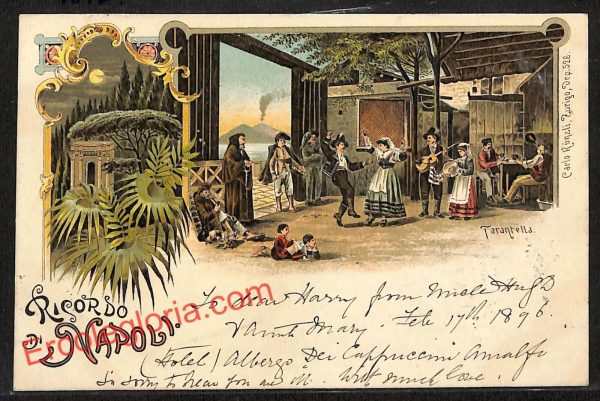 Carlo Künzli, Zurigo, Dep. 928.
Tarantella.
RICORDO
DI NAPOLI.
Ercolagloria.com
To dear Harry from Uncle Hugh
Aunt Mary. Feb 17th 1896.
(Hotel) Albergo Dei Cappuccini Amalfi
So sorry to hear you are ill. With much love.